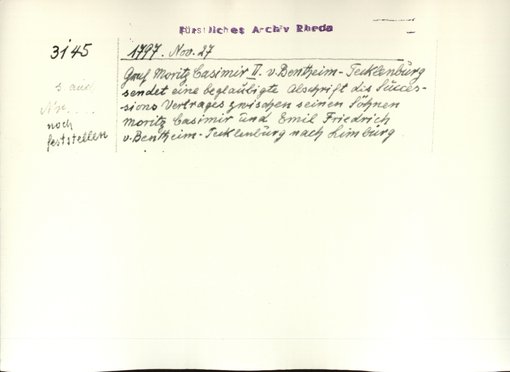 Fürstliches Archiv Rheda
3145
1797. Nov. 27
Graf Moritz Casimir II. v. Bentheim-Tecklenburg
sendet eine beglaubigte Abschrift des Succes-
sions Vertrages zwischen seinen Söhnen
Moritz Casimir und Emil Friedrich
v. Bentheim-Tecklenburg nach Limburg
noch
feststellen